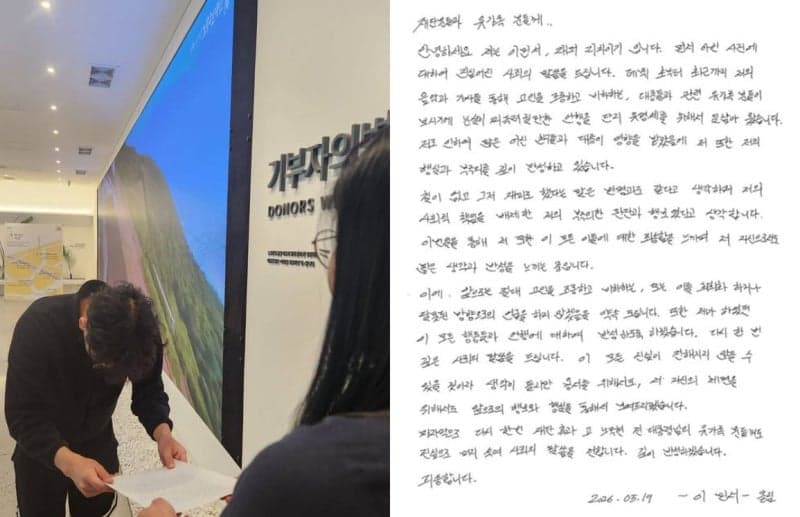 기부자의 벽
DONORS W
재단분들과 유가족 분들께..
안녕하세요 저는 이민서, 래퍼 리치이기 입니다. 먼저 이번 사건에
대하여 진심어린 사죄의 말씀을 드립니다. 데뷔 초부터 최근까지 저의
음악과 가사를 통해 고인을 조롱하고 비하하는, 대중들과 관련 유가족 분들이
보시기에 눈살이 찌푸려질만한 언행을 단지 유명세를 위해서 일삼아 왔습니다.
저로 인하여 많은 어린 분들과 대중이 영향을 받았음에 저 또한 저의
행실과 부주의를 깊이 반성하고 있습니다.
철이 없고 그저 재미로 했다는 말은 변명과도 같다고 생각하며 저의
사회적 책임을 배제한 저의 부주의한 판단과 행보였다고 생각합니다.
이번일을 통해 저 또한 이 모든 이들에 대한 모욕감을 느끼며 저 자신으로도
많은 생각과 반성을 느끼는 중입니다.
이에, 앞으로는 절대 고인을 조롱하고 비하하는, 또는 이를 희화화 하거나
잘못된 방향으로의 언급을 하지 않겠음을 약속 드립니다. 또한 제가 하였던
이 모든 행동들과 언행에 대하여 반성하도록 하겠습니다. 다시 한 번
깊은 사죄의 말씀을 드립니다. 이 모든 진심이 전해지리
있을 것이라 생각이 들지만 용서를 위해서도, 저 자신의 체면을
위해서도 앞으로의 행보와 행실을 통해서 보여드리겠습니다.
마지막으로 다시 한번 재단 측과 고 노무현 전 대통령님의 유가족 분들께도
진심으로 머리 숙여 사죄의 말씀을 전합니다. 깊이 반성하겠습니다.
죄송합니다.
2026.03.19 ~ 이 민서 ~